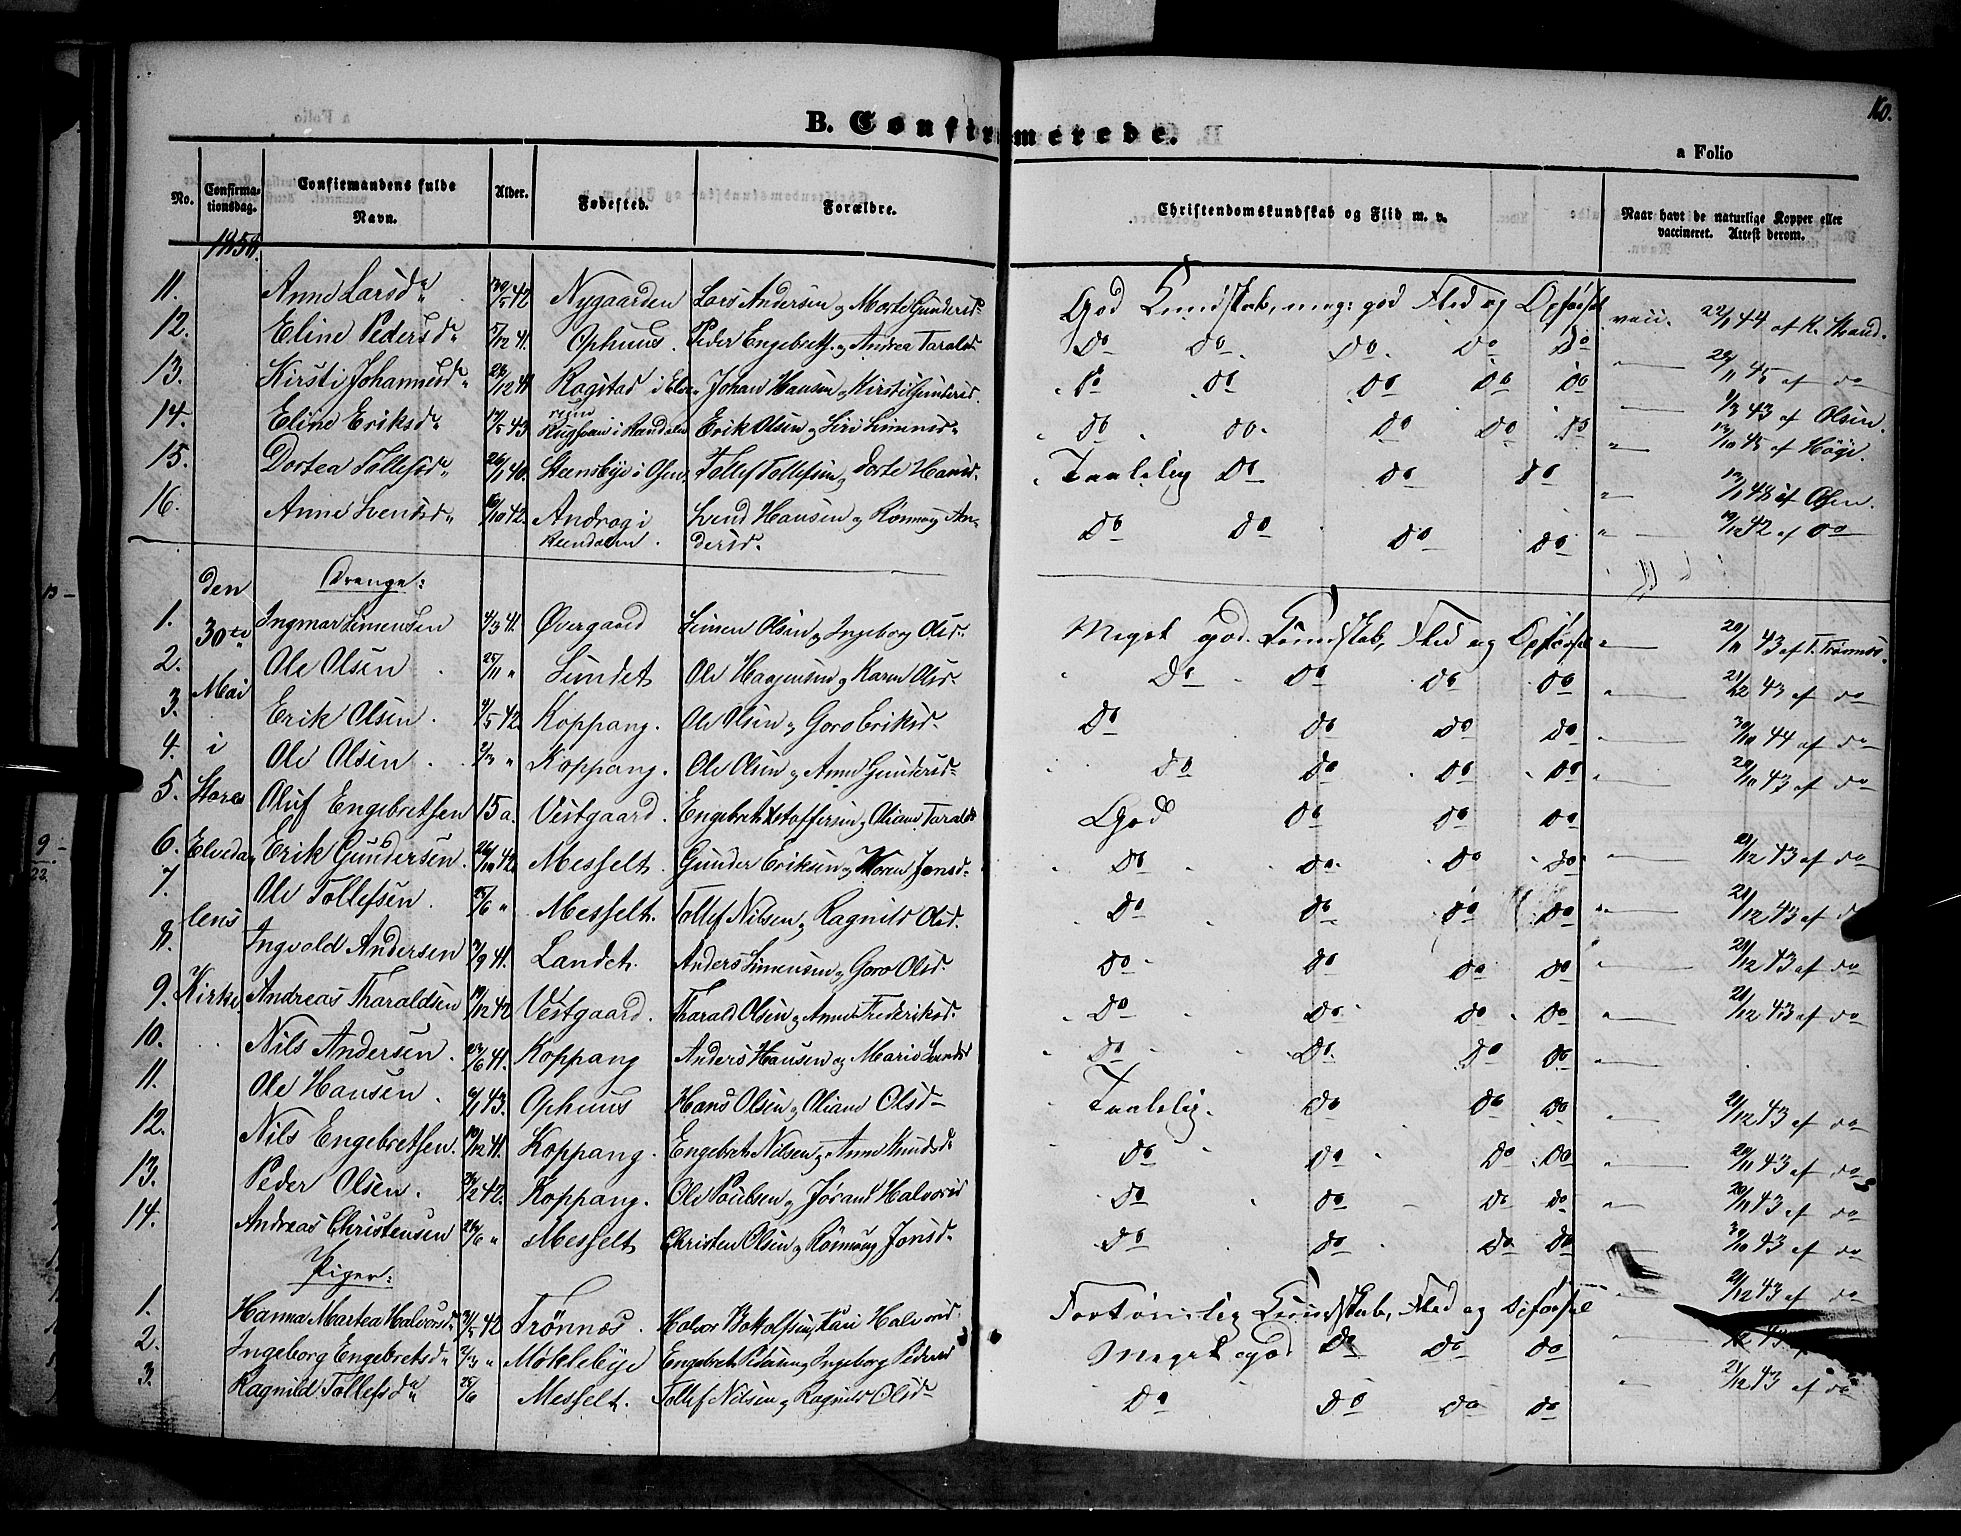 160.
B. Confirmerede.
a Folio
No. Confirmationsdag. Confirmandens fulde Navn. Alder. Fødested. Forældre. Christendomskundskab og Flid m. v. Naar havt de naturlige Kopper eller vaccineret. Attest derom.
1856.
11. Anne Larsd. 42 Nygaarden Lars Andersen og Marte Gundersd. God Kundskab, meg: god Flid og Opførsel vacc. 22/1 44 af K. Strand.
12. Eline Pedersd. 5/12 41. Ophuus. Peder Engebrets. og Andrea Taralsd. Do Do. Do. Do Do 45 af do
13. Kirsti Johannesd. 28/12 41 Rogstad i Elverum Johan Hansen og Kirsti Gundersd. Do Do Do Do Do 1/3 43 af Olsen.
14. Eline Eriksd. 17/5 43 i Rendalen Erik Olsen og Siri Simensd. Do Do. Do Do Do 45 af Høye.
15. Dortea Tollefsd. 26/1 40. Steensbye i Osen Tollef Tollefsen og Dorte Hansd. Taalelig Do Do Do 48 af Olsen.
16. Anne Svendsd. 16/10 42. Androg i Rendalen. Svend Hansen og Rønnog Andersd. Do Do Do Do 42 af Do
den 30te Mai i Store Elvedalens Kirke
Drenge:
1. Ingmar Simensen 4/3 41. Øvergaard Simen Olsen og Ingeborg Olsd. Meget god Kundskab, Flid og Opførsel 20/11 43 af T. Trønnes.
2. Ole Olsen 25/11 " Sundet Ole Haagensen og Karen Olsd. Do Do Do Do 43 af do
3. Erik Olsen. 4/5 42. Koppang. Ole Olsen og Goro Eriksd. Do Do Do Do 30/10 44 af do
4. Ole Olsen. " Koppang. Ole Olsen og Anne Gundersd. Do Do Do Do 20/10 43 af do
5. Oluf Engebretsen 15 a. Vestgaard. Engebret Kristoffersen og Oliane Taralsd. God Do Do Do
6. Erik Gundersen. 26/10 42. Messelt. Gunder Eriksen og Karen Jonsd. Do Do. Do Do 21/12 43 af do
7. Ole Tollefsen. 25/6 " Messelt. Tollef Nilsen og Ragnild Olsd. Do Do Do Do 21/12 43 af do
8. Ingvald Andersen 3/9 41. Landet. Anders Simensen og Goro Olsd. Do Do Do Do 21/12 43 af do
9. Andreas Tharaldsen 19/12 42 Vestgaard. Tharald Olsen og Anne Frederiksd. Do Do. Do Do 21/12 43 af do
10. Nils Andersen. 23/6 41. Koppang Anders Hansen og Marie Do Do. Do Do
11. Ole Hansen. 43. Ophuus Hans Olsen og Oliane Olsd. Taalelig. Do Do Do 21/12 43 af do
12. Nils Engebretsen. 10/12 41. Koppang. Engebret Nilsen og Anne Knudsd. Do Do Do Do 20/11 43 af do
13. Peder Olsen. 42. Koppang. Ole Poulsen og Jørand Halvorsd. Do Do Do Do 20/11 43 af do
14. Andreas Christensen 26/6 " Messelt Christen Olsen og Rønnaug Jonsd. Do Do Do Do 30/10 43 af do
Piger:
1. Hanna Martea Halvorsd. 42 Trønnes. Halvor og Kari Halvorsd. Fortrinlig Kundskab, Flid og Opførsel 21/12 43 af do
2. Ingeborg Engebretsd. " Møklebye Engebret Pedersen og Ingeborg Pedersd Meget god Do Do Do 43
3. Ragnild Tollefsd. 25/6 Messelt. Tollef Nilsen og Ragnild Olsd. Do Do Do Do 21/12 43 af do